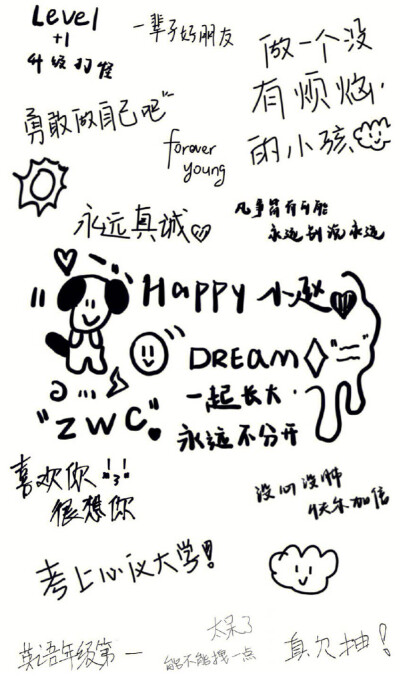 Level
+1
升级羽怪
一辈子好朋友
做一个没
有烦恼.
的小孩
勇敢做自己吧"
forever
young
永远真诚
凡事皆有可能
永远别说永远
"Happy 小赵
DREAM "="
一起长大.
"ZWC"
永远不分开
喜欢你!!
很想你
没心没肺
快乐加倍
考上心议大学!
太呆了
英语年级第一
能不能拽一点
真欠抽!